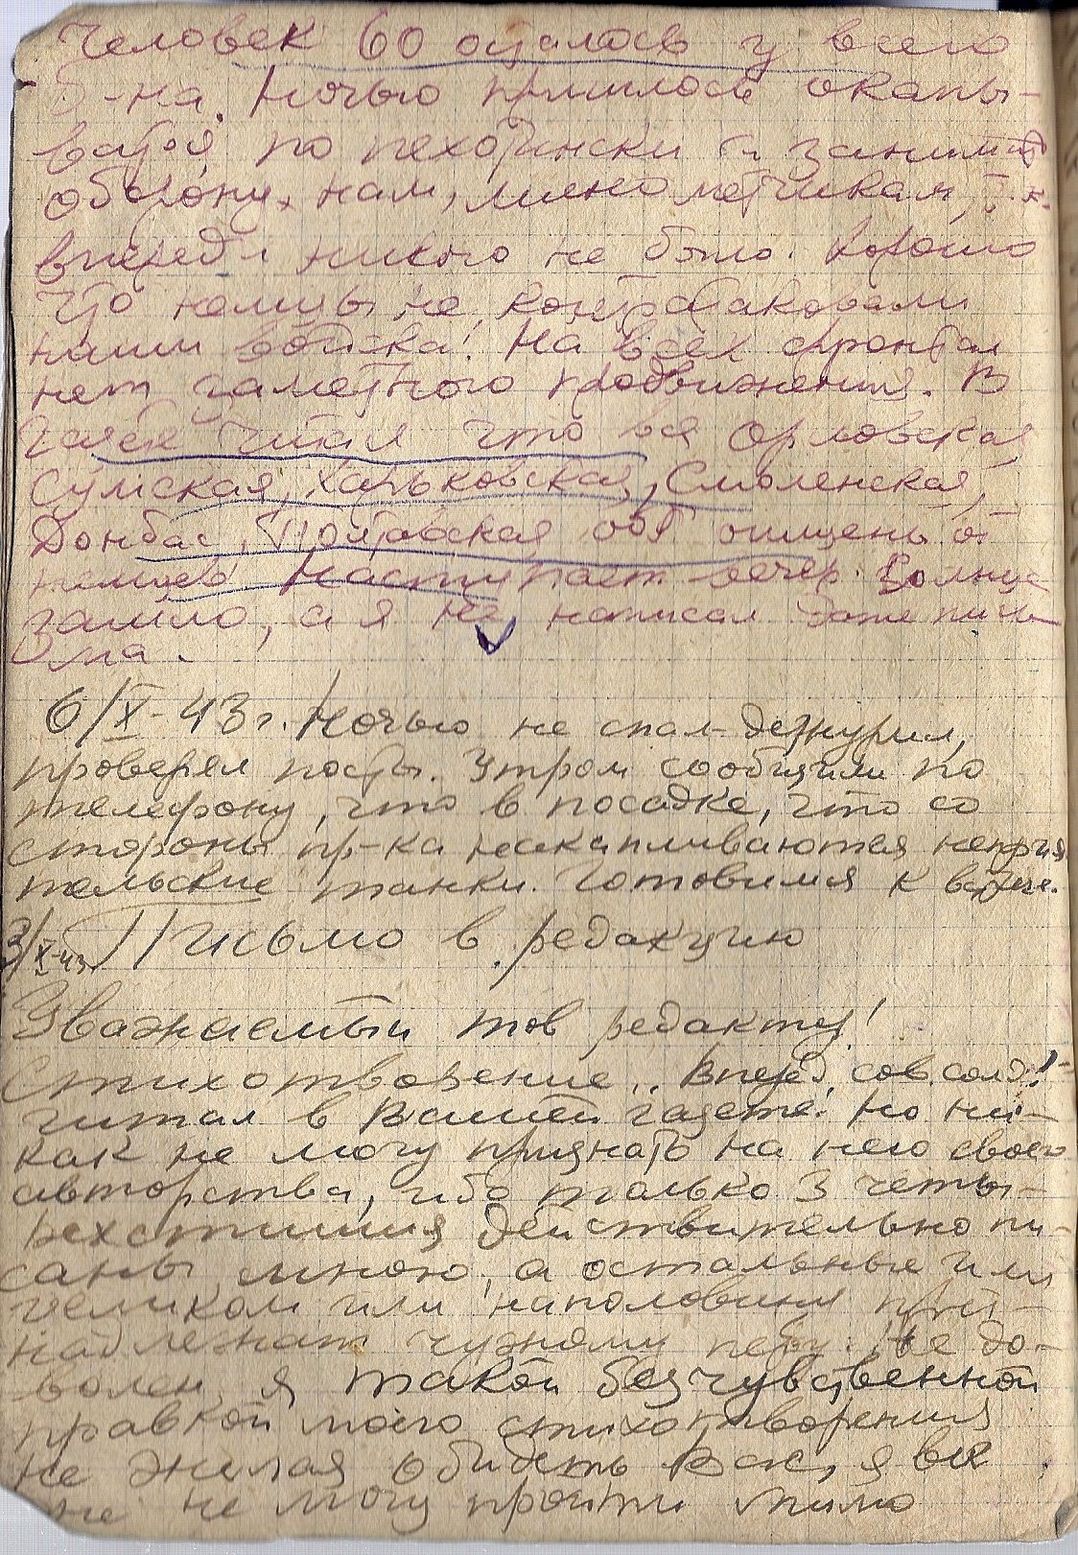 Человек 60 осталось у всего
б-на. Ночью пришлось окапы-
ваться по пехотински и занимать
оборону, нам, минометчикам, т.к.
впереди никого не было. Хорошо
что немцы не контратаковали
наши войска! На всех фронтах
нет заметного продвижения. В
газете читал что вся Орловская,
Сумская, Харьковская, Смоленская,
Донбас, Полтавская обл очищены от
немцев. Наступает вечер. Солнце
зашло, а я не написал даже пись-
ма.
6/X-43г. Ночью не спал-дежурил,
проверял посты. Утром сообщили по
телефону, что в посадке, что со
стороны пр-ка накапливаются неприя
тельские танки. Готовимся к встрече.
3/X-43. Письмо в редакцию
Уважаемый тов редактор!
Стихотворение „Вперёд, сов. солд."
читал в Вашей газете. Но ни-
как не могу признать на него своего
авторства, ибо только 3 четы-
рехстишия действительно пи-
саны мною, а остальные или
целиком или наполовину при-
надлежат чужому перу. Не до-
волен я такой безчувственной
правкой моего стихотворения
не желая обидеть Вас, я все
же не могу пройти мимо